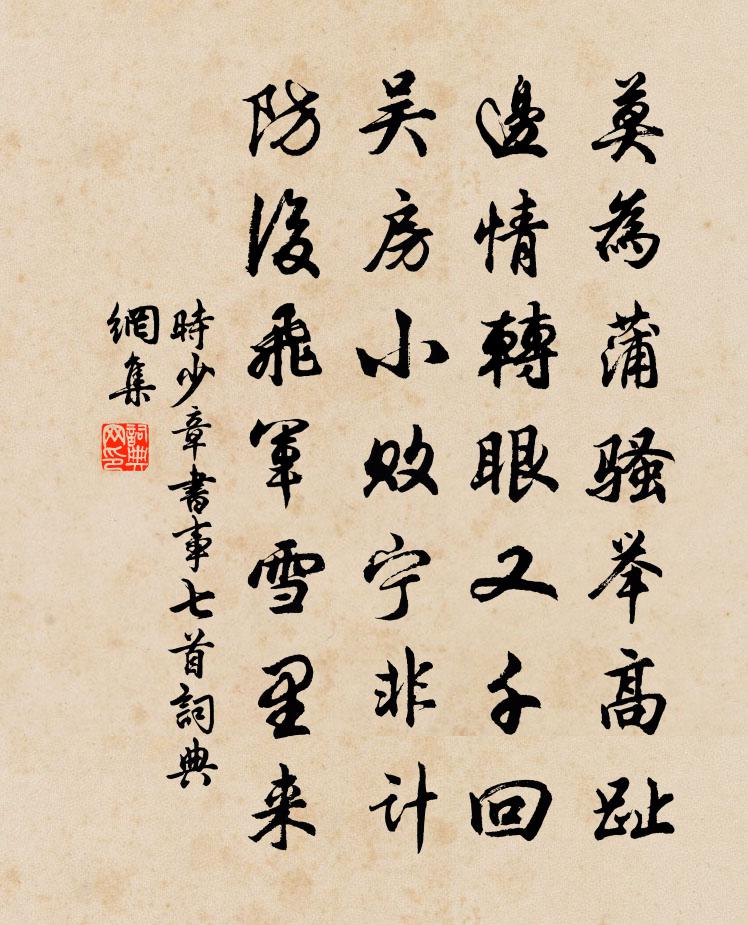 莫為蒲騷举高趾
邊情轉眼又千回
吴房小败宁非計
防後飛軍雪里来
時少章書事七首詞典
網集
詞典
网印